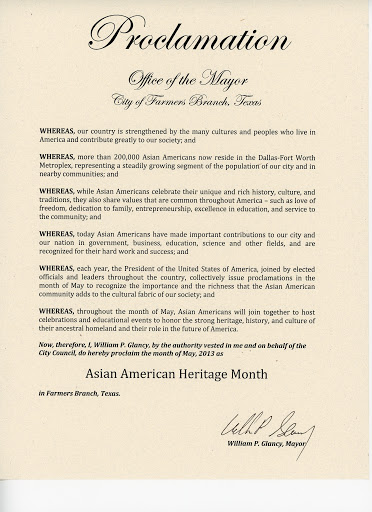 Proclamation
Office of the Mayor
City of Farmers Branch, Texas
WHEREAS, our country is strengthened by the many cultures and peoples who live in
America and contribute greatly to our society; and
WHEREAS, more than 200,000 Asian Americans now reside in the Dallas-Fort Worth
Metroplex, representing a steadily growing segment of the population of our city and in
nearby communities; and
WHEREAS, while Asian Americans celebrate their unique and rich history, culture, and
traditions, they also share values that are common throughout America – such as love of
freedom, dedication to family, entrepreneurship, excellence in education, and service to
the community; and
WHEREAS, today Asian Americans have made important contributions to our city and
our nation in government, business, education, science and other fields, and are
recognized for their hard work and success; and
WHEREAS, each year, the President of the United States of America, joined by elected
officials and leaders throughout the country, collectively issue proclamations in the
month of May to recognize the importance and the richness that the Asian American
community adds to the cultural fabric of our society; and
WHEREAS, throughout the month of May, Asian Americans will join together to host
celebrations and educational events to honor the strong heritage, history, and culture of
their ancestral homeland and their role in the future of America.
Now, therefore, I, William P. Glancy, by the authority vested in me and on behalf of the
City Council, do hereby proclaim the month of May, 2013 as
Asian American Heritage Month
in Farmers Branch, Texas.
William P. Glancy, Mayor